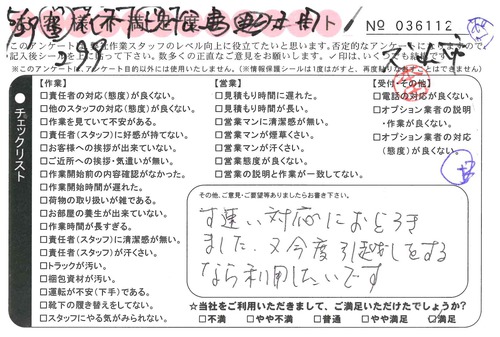 № 036112
このアンケートは弊社作業スタッフのレベル向上に役立てたいと思います。否定的なアンケートになりますので、
記入後シールを上に貼って下さい。数多くの正直なご意見をお願いします。✓印は、いくつでも結構です。
※このアンケートは、アンケート目的以外には使用いたしません。(※情報保護シールは1度はがすと、再度貼りなおすことはできません)
チェックリスト
【作業】
□責任者の対応(態度)が良くない。
□他のスタッフの対応(態度)が良くない。
□作業を見ていて不安がある。
□責任者(スタッフ)に好感が持てない。
□お客様への挨拶が出来ていない。
□ご近所への挨拶・気遣いが無い。
□作業開始前の内容確認がなかった。
□作業開始時間が遅れた。
□荷物の取り扱いが雑である。
□お部屋の養生が出来ていない。
□作業時間が長すぎる。
□責任者(スタッフ)に清潔感が無い。
□責任者(スタッフ)が汗くさい。
□トラックが汚い。
□梱包資材が汚い。
□運転が不安(下手)である。
□靴下の履き替えをしてない。
□スタッフにやる気がみられない。
【営業】
□見積もり時間に遅れた。
□見積もり時間が長い。
□営業マンに清潔感が無い。
□営業マンが煙草くさい。
□営業マンが汗くさい。
□営業態度が良くない。
□営業の説明と作業が一致してない。
【受付・その他】
□電話の対応が良くない。
□オプション業者の説明
・作業が良くない。
□オプション業者の対応
(態度)が良くない。
その他、ご意見・ご要望等ありましたらお書き下さい。
す速い対応におどろき
ました。又今度引越しをする
なら利用したいです
☆当社をご利用いただきまして、ご満足いただけたでしょうか?
□不満 □やや不満 □普通 □やや満足 ☑満足